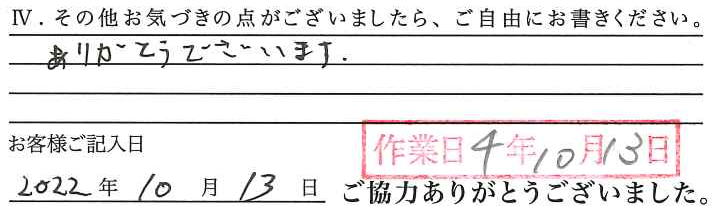 Ⅳ．その他お気づきの点がございましたら、ご自由にお書きください。
ありがとうございます.
お客様ご記入日
作業日4年10月13日
2022年10月13日
ご協力ありがとうございました。